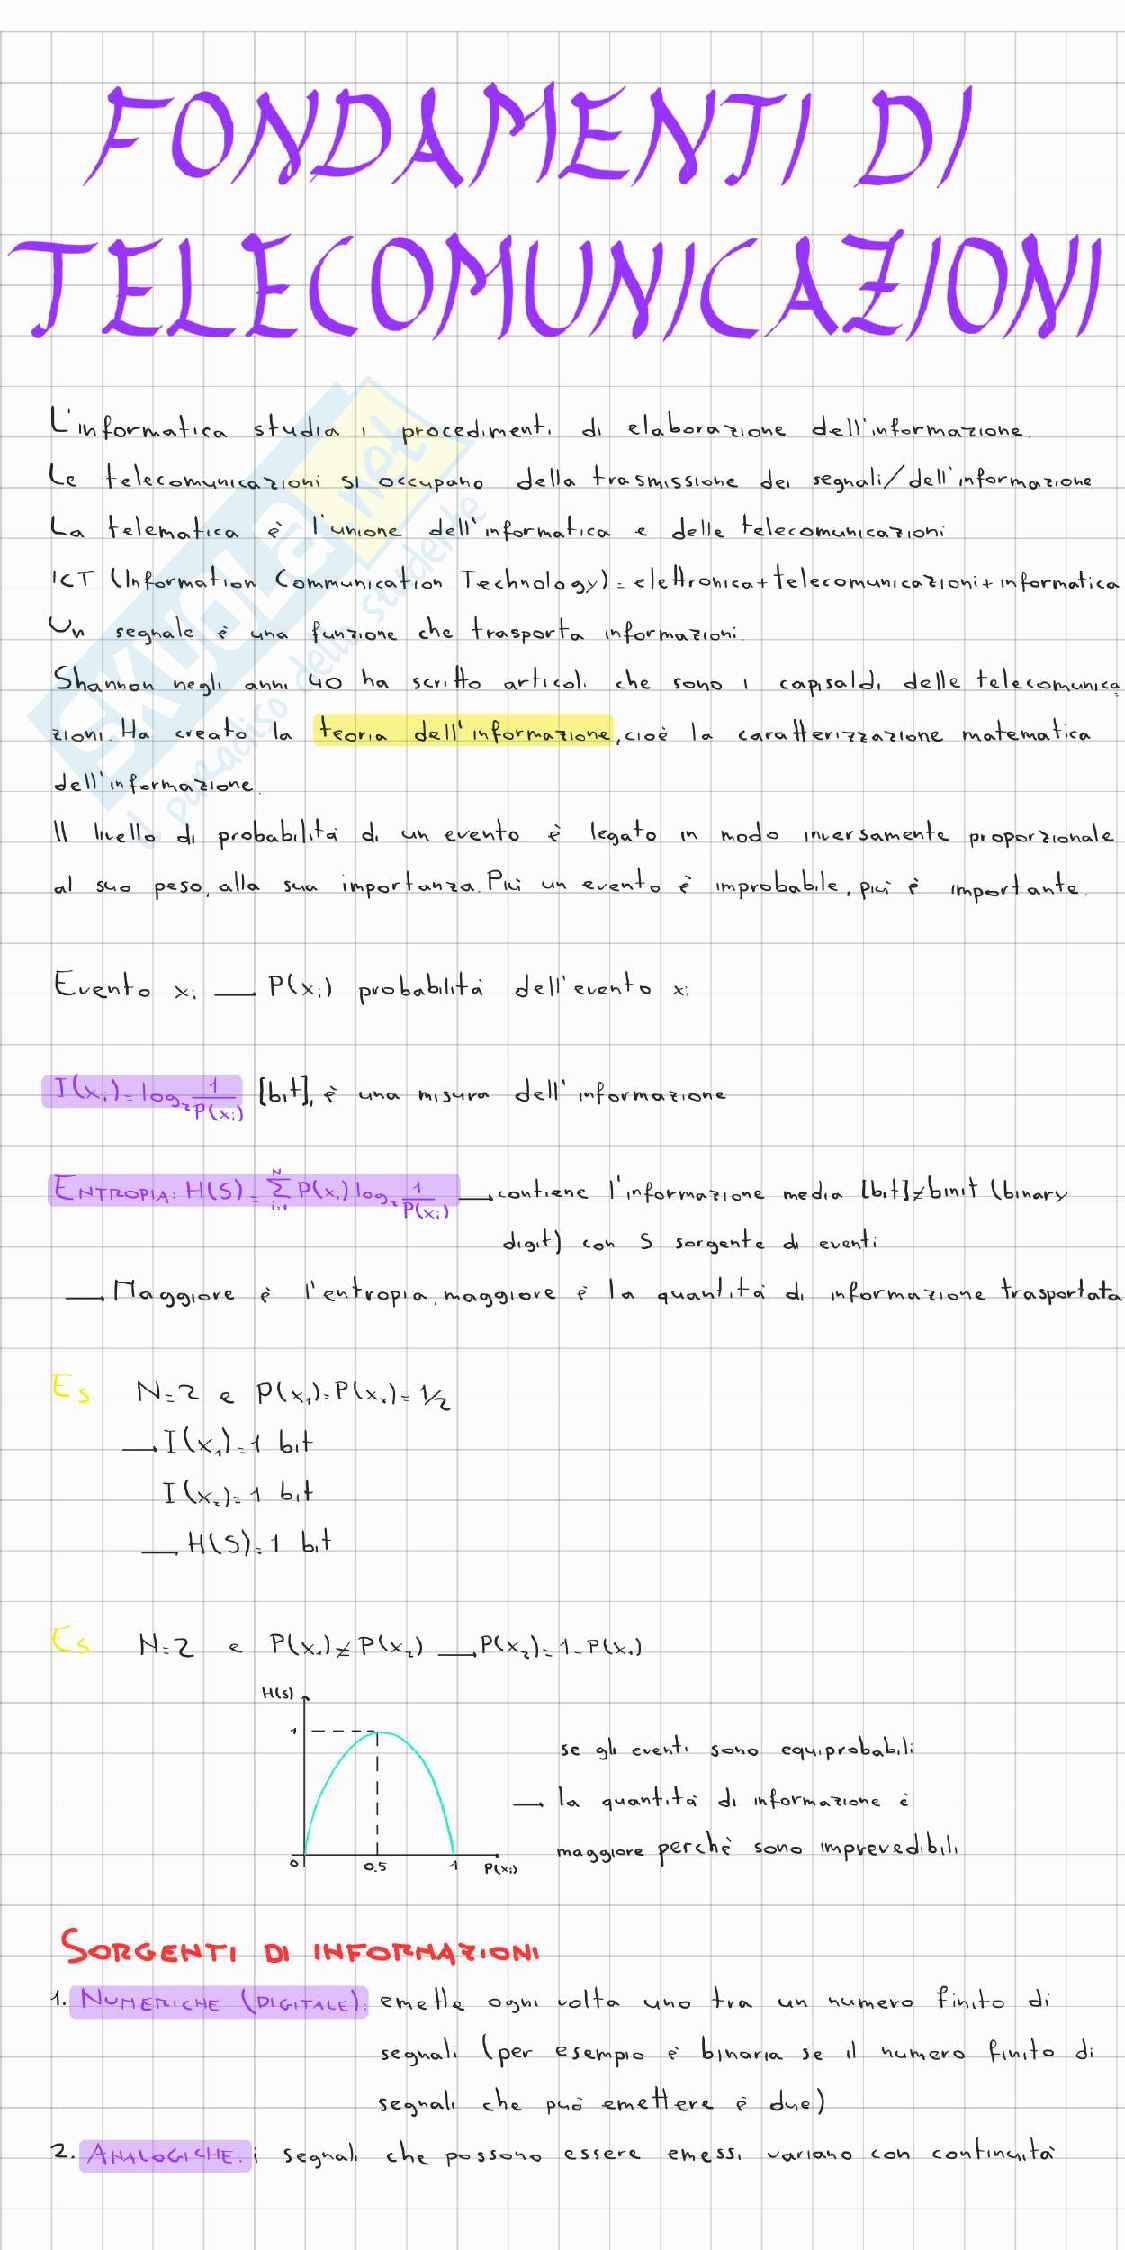 FONDAMENTI DI
TELECOMUNICAZIONI
L'informatica studia i procedimenti di elaborazione dell'informazione.
Le telecomunicazioni si occupano della trasmissione dei segnali/dell'informazione
La telematica è l'unione dell'informatica e delle telecomunicazioni
ICT (Information Communication Technology) = elettronica+telecomunicazioni+informatica
Un segnale è una funzione che trasporta informazioni.
Shannon negli anni 40 ha scritto articoli che sono i capisaldi delle telecomunica
zioni. Ha creato la teoria dell'informazione, cioè la caratterizzazione matematica
dell'informazione.
Il livello di probabilità di un evento è legato in modo inversamente proporzionale
al suo peso, alla sua importanza. Più un evento è improbabile, più è importante.
Evento xi — P(xi) probabilità dell'evento xi
I(xi) = log₂ 1/P(xi) [bit], è una misura dell'informazione
ENTROPIA: H(S) = Σ(i=1..N) P(xi) log₂ 1/P(xi) → contiene l'informazione media [bit]≠binit (binary
digit) con S sorgente di eventi
→ Maggiore è l'entropia, maggiore è la quantità di informazione trasportata
Es N=2 e P(x₁)=P(x₂)=1/2
→ I(x₁)=1 bit
I(x₂)=1 bit
→ H(S)=1 bit
Es N=2 e P(x₁)≠P(x₂) → P(x₂)=1-P(x₁)
H(S)
1
0 0.5 1 P(xi)
se gli eventi sono equiprobabili
→ la quantità di informazione è
maggiore perchè sono imprevedibili
SORGENTI DI INFORMAZIONI
1. NUMERICHE (DIGITALE): emette ogni volta uno tra un numero finito di
segnali (per esempio è binaria se il numero finito di
segnali che può emettere è due)
2. ANALOGICHE: i segnali che possono essere emessi variano con continuità
SKUOLA.net
il paradiso dello studente